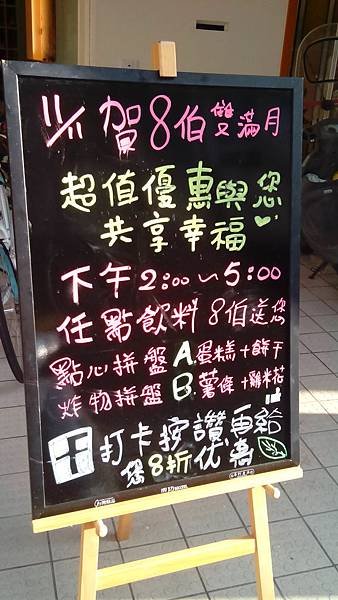 11/11 賀8伯雙滿月
超值優惠與您
共享幸福
下午2:00~5:00
任點飲料8伯送您
點心拼盤 A.蛋糕+餅干
炸物拼盤 B.薯條+雞米花
打卡按讚再給
您8折优惠